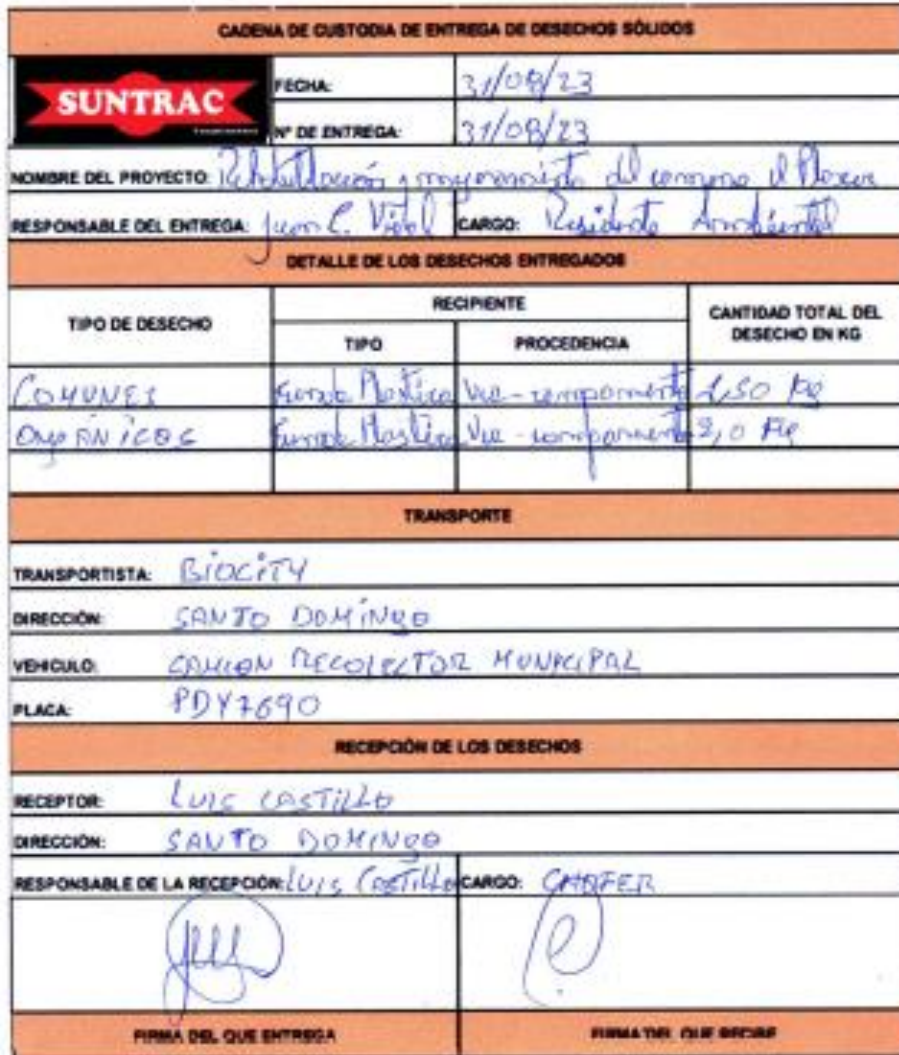 CADENA DE CUSTODIA DE ENTREGA DE DESECHOS SÓLIDOS
SUNTRAC
FECHA: 31/08/23
Nº DE ENTREGA: 31/08/23
NOMBRE DEL PROYECTO: y del el
RESPONSABLE DEL ENTREGA: Juan C. Vidal CARGO: Residente Ambiental
DETALLE DE LOS DESECHOS ENTREGADOS
TIPO DE DESECHO RECIPIENTE CANTIDAD TOTAL DEL DESECHO EN KG
TIPO PROCEDENCIA
COMUNES Funda Plastica Via-campamento 1,50 Kg
ORGÁNICOS Funda Plastica Via-campamento 2,0 Kg
TRANSPORTE
TRANSPORTISTA: BIOCITY
DIRECCIÓN: SANTO DOMINGO
VEHICULO: CAMION RECOLECTOR MUNICIPAL
PLACA: PDY7690
RECEPCIÓN DE LOS DESECHOS
RECEPTOR: LUIS CASTILLO
DIRECCIÓN: SANTO DOMINGO
RESPONSABLE DE LA RECEPCIÓN: LUIS CASTILLO CARGO: CHOFER
FIRMA DEL QUE ENTREGA FIRMA DEL QUE RECIBE